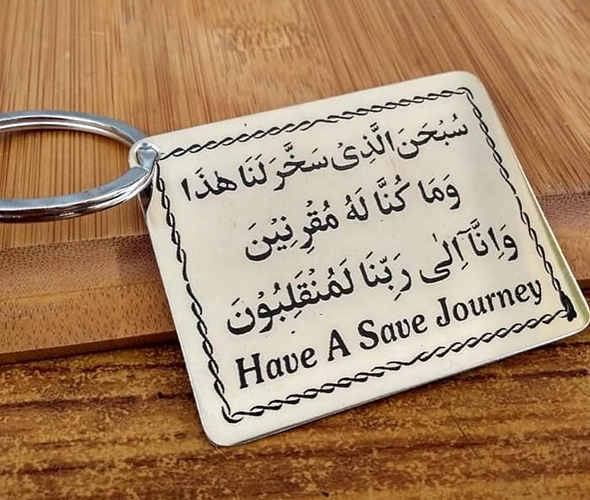 سُبْحٰنَ الَّذِیْ سَخَّرَ لَنَا هٰذَا
وَمَا كُنَّا لَهٗ مُقْرِنِیْنَ
وَاِنَّاۤ اِلٰی رَبِّنَا لَمُنْقَلِبُوْنَ
Have A Save Journey